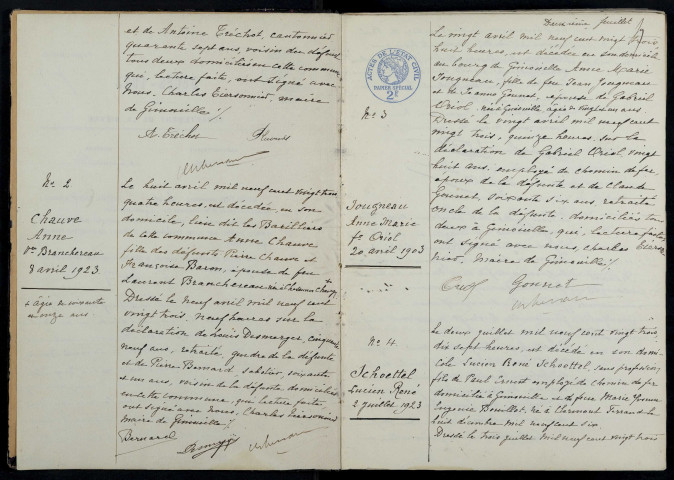 et de Antoine Tréchot, cantonnier
quarante sept ans, voisin du défunt
tous deux domiciliés en cette commune
qui, lecture faite, ont signé avec
Nous, Charles Tiersonnier, maire
de Gimouille /.
A. Tréchot
No 2
Chauve
Anne
Vve Branchereau
8 avril 1923
+ âgée de soixante
et onze ans
Le huit avril mil neuf cent vingt trois
quatre heures, est décédée, en son
domicile, lieu dit les Barilliers
de cette commune Anne Chauve
fille des défunts Pierre Chauve et
Françoise Baron, épouse de feu
Laurent Branchereau née à
Dressé le neuf avril mil neuf cent
vingt trois, neuf heures sur la
déclaration de Louis Desmerger, cinquante
neuf ans, retraité, gendre de la défunte
et de Pierre Bernard, sabotier, soixante
et un ans, voisin de la défunte domiciliés
en cette commune, qui lecture faite
ont signé avec Nous, Charles Tiersonnier
maire de Gimouille /.
Bernard
Deuxième feuillet
ACTES DE L'ÉTAT CIVIL
PAPIER SPÉCIAL
2F
No 3
Jougneau
Anne Marie
fe Oriol
20 avril 1903
Le vingt avril mil neuf cent vingt trois
huit heures, est décédée en son domicile
au bourg de Gimouille Anne Marie
Jougneau, fille de feu Jean Jougneau
et de Jeanne Gonnet, épouse de Gabriel
Oriol, née à Gimouille âgée de vingt ans
Dressé le vingt avril mil neuf cent
vingt trois, quinze heures, sur la
déclaration de Gabriel Oriol, vingt
huit ans, employé de chemin de fer,
époux de la défunte et de Claude
Gonnet, soixante six ans, retraité
oncle de la défunte, domiciliés tous
deux à Gimouille, qui, lecture faite
ont signé avec nous, Charles Tierson
nier, Maire de Gimouille /.
Gonnet
No 4
Schoettel
Lucien René
2 juillet 1923
Le deux juillet mil neuf cent vingt trois
dix sept heures, est décédé en son domi
cile Lucien René Schoettel, sans profession,
fils de Paul Ernest employé de chemin de fer
domicilié à Gimouille et de feue Marie Jeanne
Eugénie Bouillot. Né à Clermont Ferrand le
huit décembre mil neuf cent six
Dressé le trois juillet mil neuf cent vingt trois